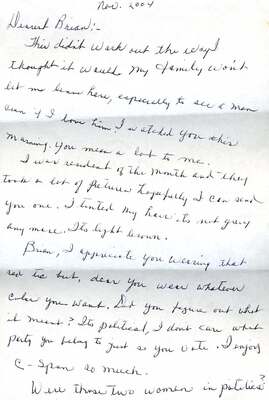 Nov. 2004
Dearest Brian:-
This didn't work out the way I
thought it would. My family won't
let me leave here, especially to see a man
even if I love him. I watched you this
morning. You mean a lot to me.
I was resident of the month and they
took a lot of pictures hopefully I can send
you one. I tinted my hair. Its not gray
any more. Its light brown.
Brian, I appreciate you wearing that
red tie but, dear you wear whatever
color you want. Did you figure out what
it meant? Its political, I don't care what
party you belong to just so you vote. I enjoy
C-Span so much.
Were those two women in politics?